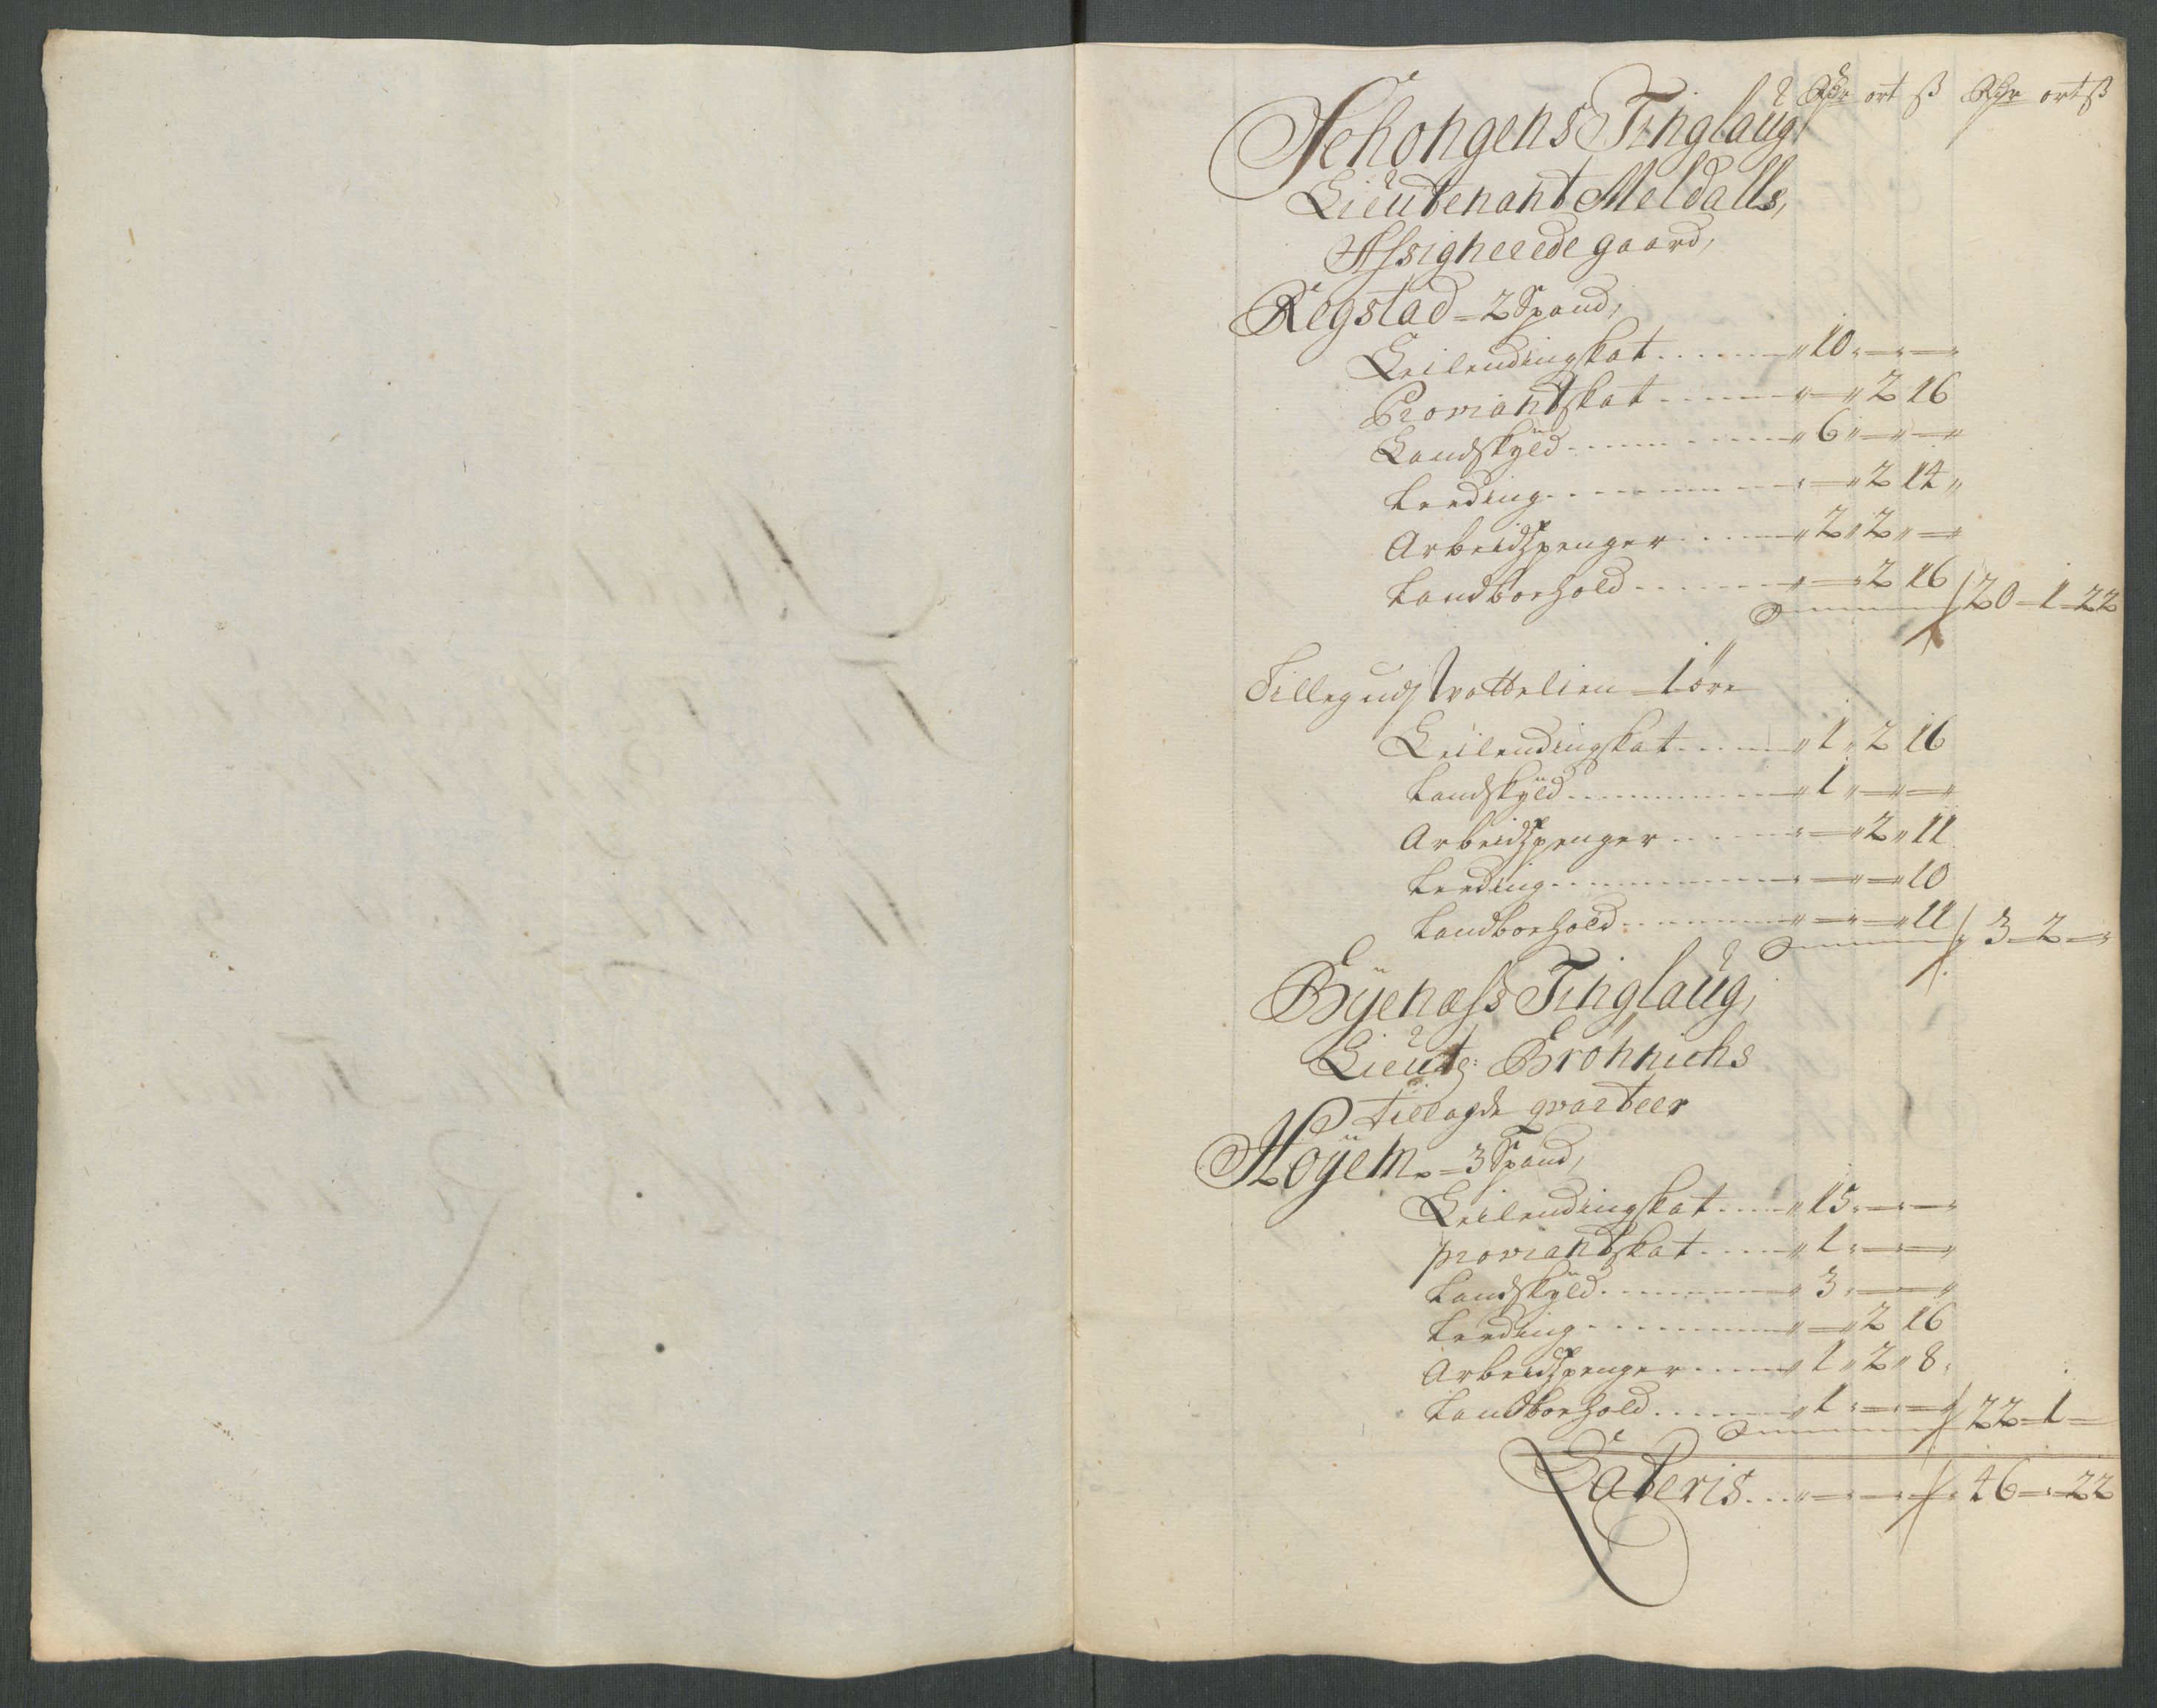 Rdr ort ß Rdr ort ß
Schongens Tinglaug
Lieutenant Meldalls,
Assignerede gaard,
Regstad = 2 Spand,
Leilendingskat . . . . . . 10 " — " — "
Proviantskat . . . . . . " — " 2 16
Landskÿld . . . . . . 6 " — " — "
Leeding . . . . . . " — " 2 14 "
Arbeidspenger . . . . . . 2 " 2 " — "
Landborhold . . . . . . " — " 2 16 / 20 — 1 — 22
Tilleg uds 1 øre
Leilendingskat . . . . . . 1 " 2 16
Landskÿld . . . . . . 1 " — " — "
Arbeidspenger . . . . . . " — " 2 " 11
Leeding . . . . . . " — " — " 10
Landborhold . . . . . . " — " — " 11 / 3 — 2 — "
Bÿenæss Tinglaug,
Lieutn: Brönnichs
tillagde qvarteer
Höÿem = 3 Spand,
Leilendingskat . . . . . . 15 " — " — "
proviantskat . . . . . . 1 " — " — "
Landskÿld . . . . . . 3 " — " — "
Leeding . . . . . . " — " 2 16
Arbeidspenger . . . . . . 1 " 2 " 8
Landborhold . . . . . . 1 " — " — " / 22 — 1 —
Lateris . . . " — " — " — " / 46 — " — 22